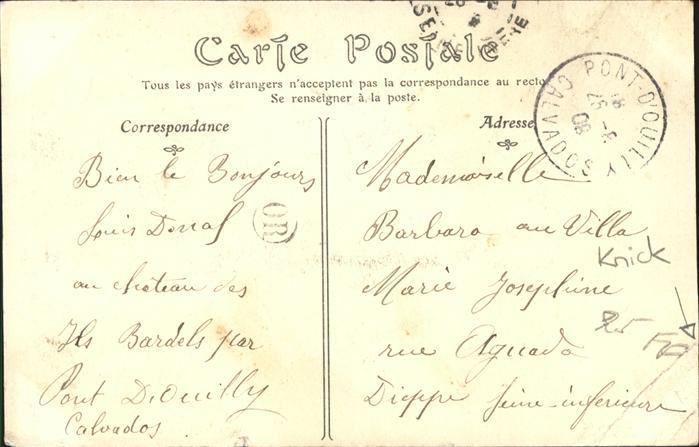 Carte Postale
Tous les pays étrangers n'acceptent pas la correspondance au recto
Se renseigner à la poste.
Correspondance
Bien le Bonjours
Louis Donal
au château des
Ils Bardels par
Pont D'Ouilly
Calvados
OR
Adresse
Mademoiselle
Barbara au Villa
Marie Josephine
rue Aguado
Dieppe Seine-inferieure
Knick
PONT-D'OUILLY
CALVADOS
08